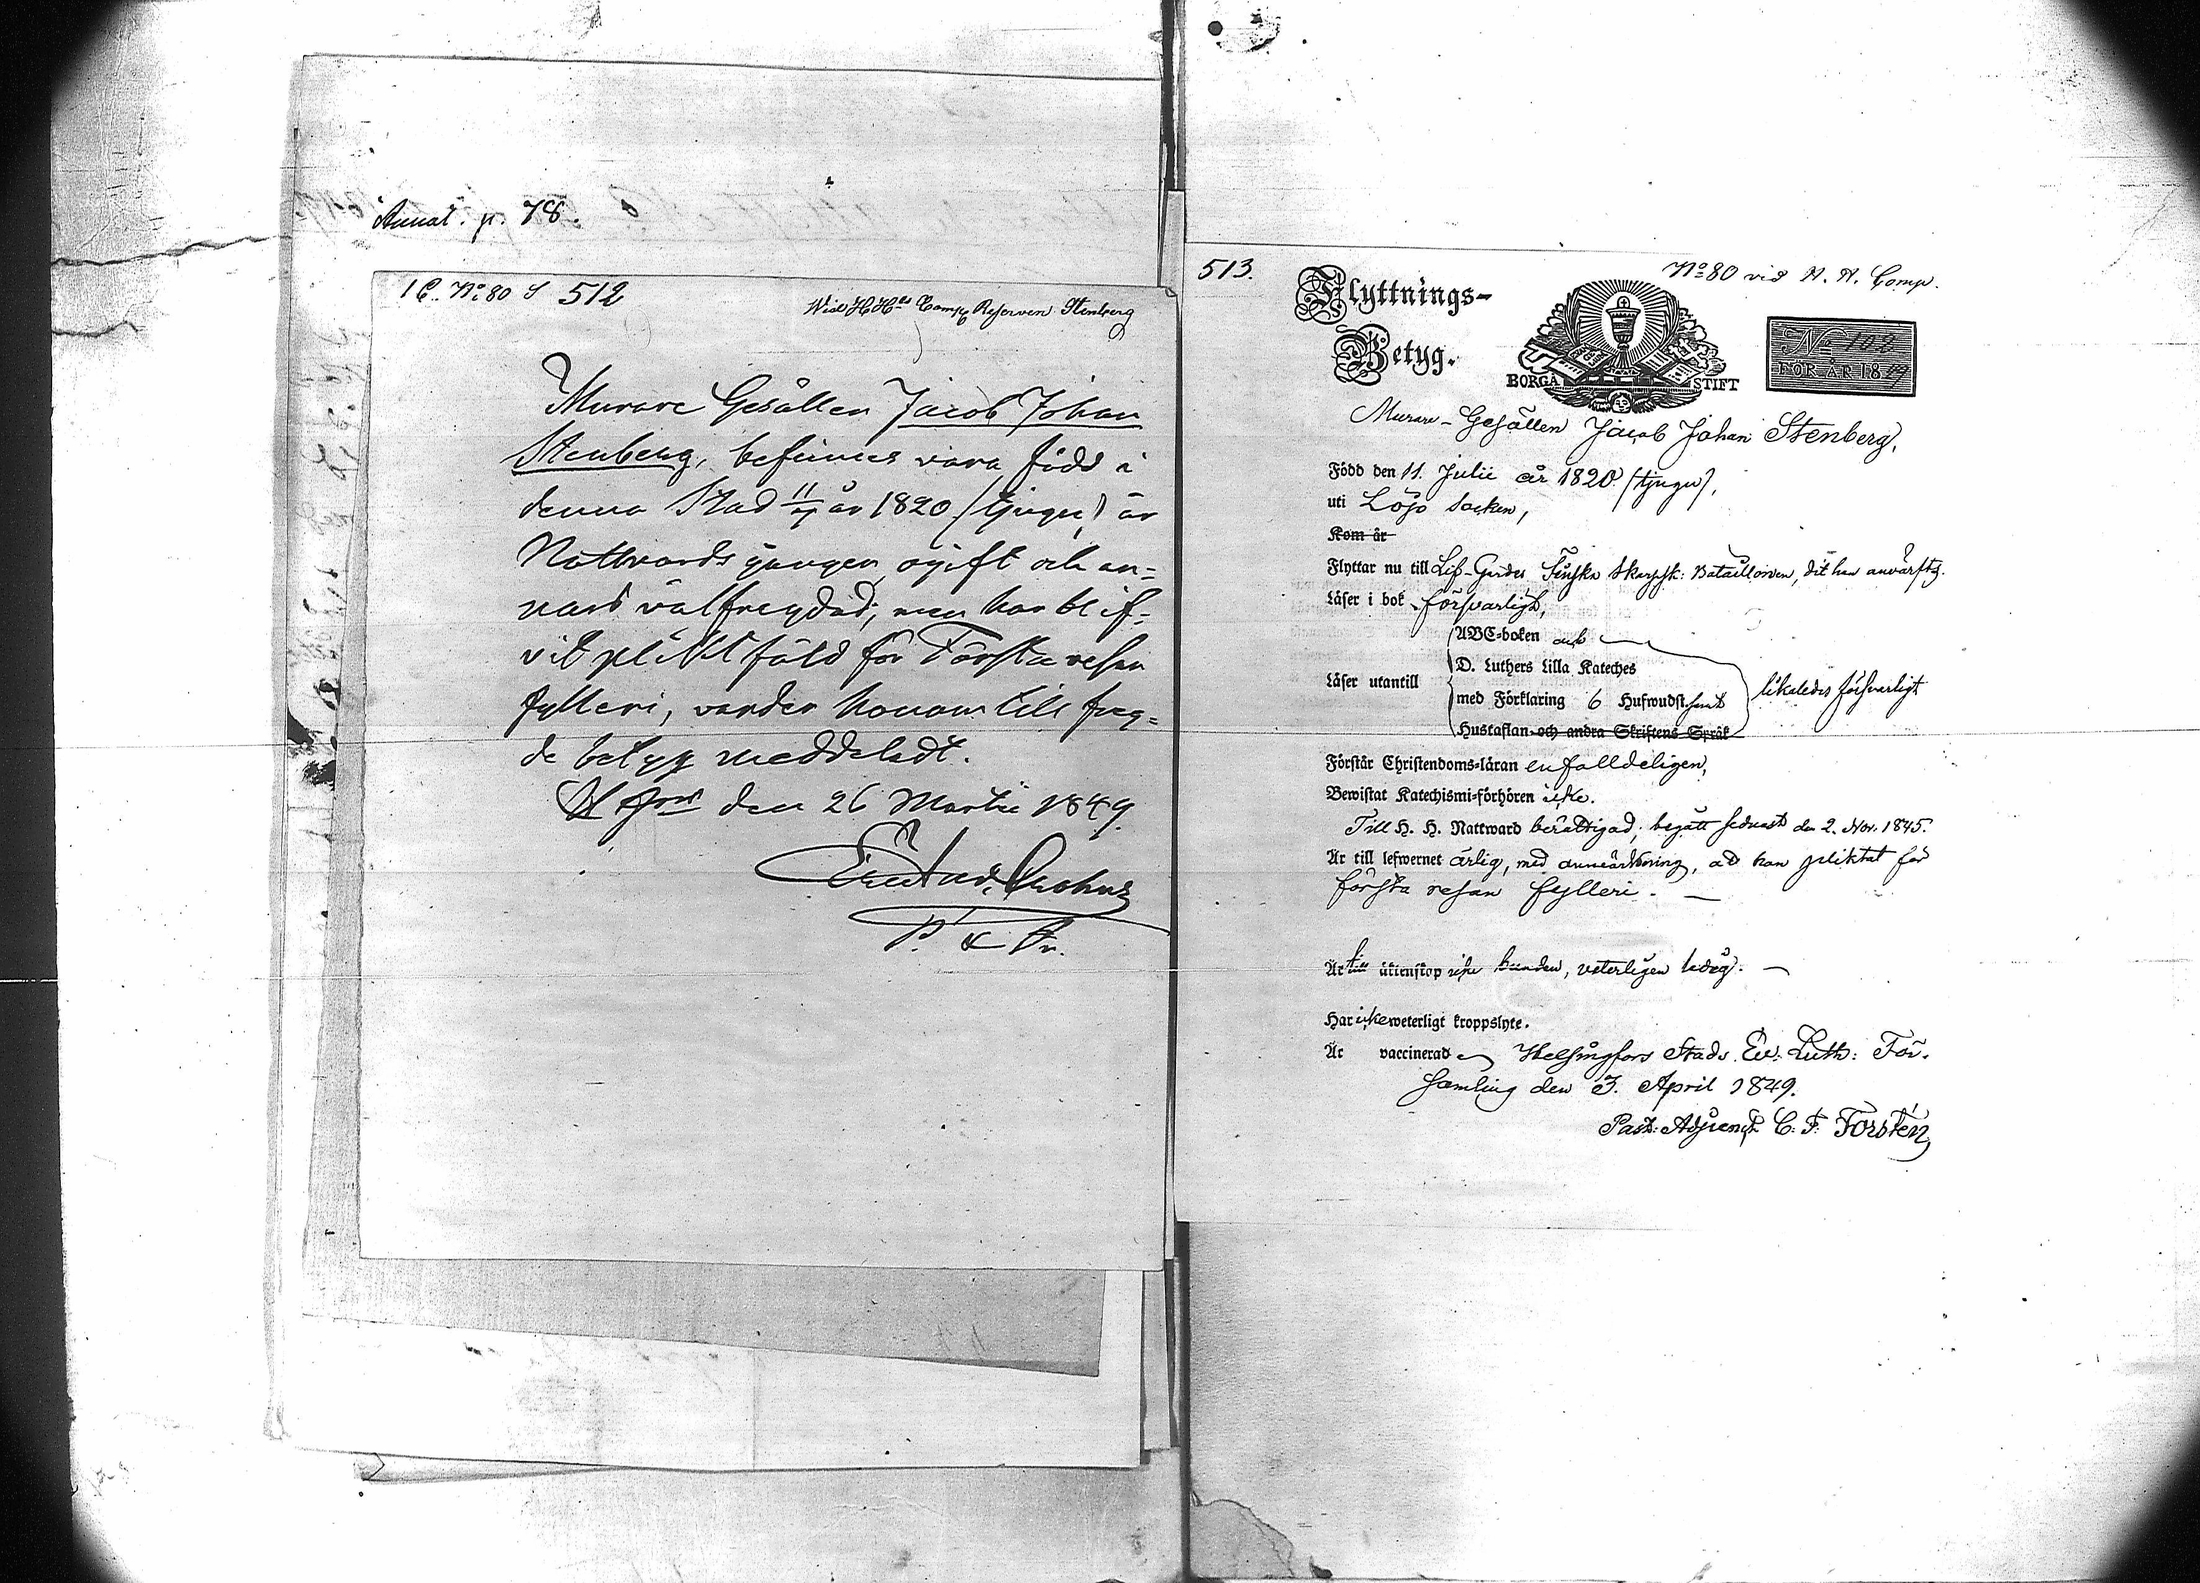 Annat. p. 78.
1 C. No 80 S 512
Wid H. H:s Comp Reserven Stenberg
Murare Gesällen Jacob Johan
Stenberg, befinnes vara född i
denna Stad 11/7 år 1820 (tjugu) är
Nattvards gången, ogift och an-
nars välfreydad; men har blif-
vit pliktfäld för Första resan
fylleri, varder honom till frey-
de betyg meddeladt.
H:fors den 26 Martii 1849.
Crohns
P. &
513.
No 80 vid H. H. Comp.
Flyttnings-
Betyg.
BORGÅ STIFT
No 102
FÖR ÅR 1849
Murare-Gesällen Jacob Johan Stenberg,
Född den 11. Julii år 1820 (tjugu),
uti Lojo Socken,
Kom år
Flyttar nu till Lif-Gardes Finska Skarpsk: Bataillonen, dit han anvärfts.
Läser i bok försvarligt,
ABC-boken och
D. Luthers Lilla Kateches
Läser utantill
med Förklaring 6 Hufwudst. samt
likaledes försvarligt
Hustaflan och andra Skriftens Språk
Förstår Christendoms-läran enfalldeligen,
Bewistat Katechismi-förhören icke.
Till H. H. Nattward berättigad, begått sednast den 2. Nov. 1845.
Är till lefwernet ärlig, med anmärkning, att han pliktat för
första resan fylleri.
Är till äktenskap icke bunden, veterligen ledig.
Har icke weterligt kroppslyte.
Är vaccinerad Helsingfors Stads Ev. Luth: För-
samling den 3. April 1849.
Past: Adjunct C. F. Forstén